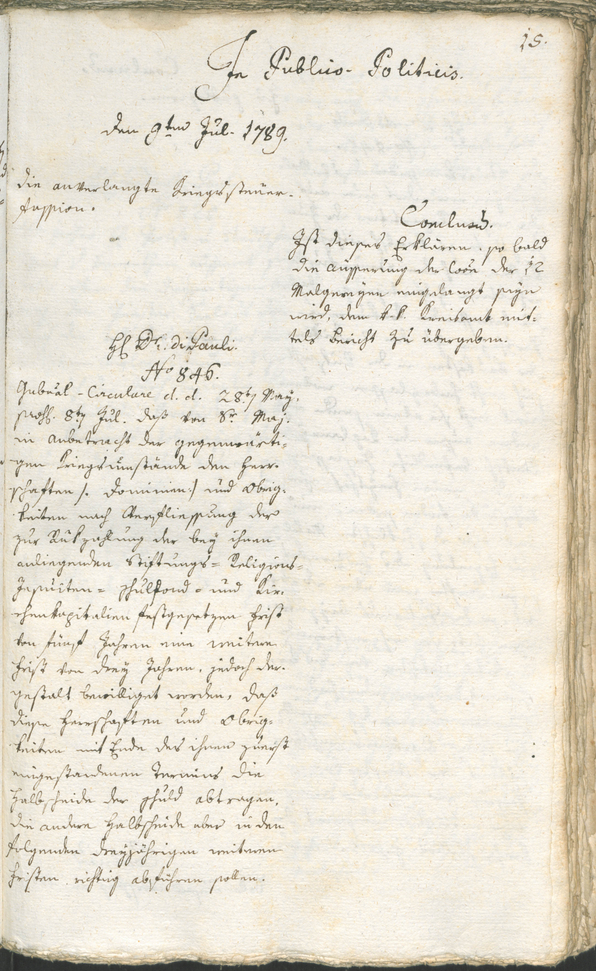 15.
In Publico-Politicis.
den 9ten Jul. 1789.
die anverlangte Kriegssteuer-
fassion.
Conclusum.
Ist dieses Erklären, so bald
die Äusserung der Löbl. der 12
Malgereyen eingelangt seyn
wird, dem k.k. Kreisamt mit-
tels Bericht zu übergeben.
H. Dr. di Pauli.
No 846.
Gubernl-Circulare d. d. 28ten May,
8ten Jul. daß von Sr Maj.
in Anbetracht der gegenwärti-
gen Kriegsumstände den Herr-
schaften /: Dominien :/ und Obrig-
keiten nach Verfliessung der
zur Rükzahlung der bey ihnen
anliegenden Stiftungs- Religions-
Jesuiten- Schulfond- und Kir-
chenkapitalien festgesetzen Frist
von fünf Jahren eine weitere
Frist von drey Jahren, jedoch der-
gestalt bewilliget worden, daß
diese Herrschaften und Obrig-
keiten mit Ende des ihnen zuerst
eingestandenen Termins die
Halbscheide der Schuld abtragen,
die andere Halbscheide aber in den
folgenden dreyjährigen weiteren
Fristen richtig abführen sollen.